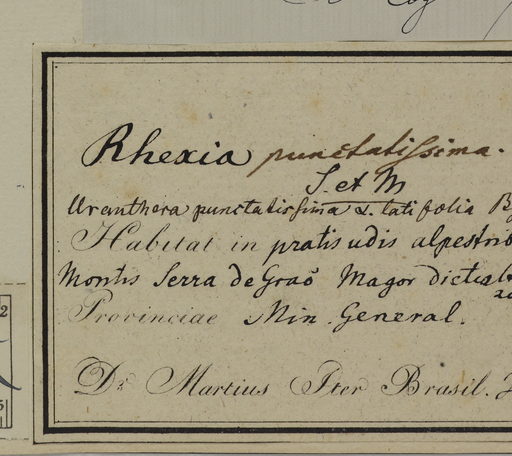 Rhexia punctatissima.
S. et M
Uranthera punctatissima α. latifolia
Habitat in pratis udis alpestrib
Montis Serra de Graõ Magor dictis
Provinciae Min. General.
Dr. Martius Iter Brasil.